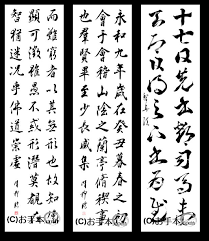 十七日先書郗司馬未
去即日得足下書為慰
永和九年歳在癸丑暮春之初
會于會稽山陰之蘭亭脩禊事
也群賢畢至少長咸集
而難窮者以其無形也故知象
顯可徴雖愚不惑形潜莫覩在
智猶迷況乎佛道崇虚
(C)お手本
(C)お手本
(C)お手本